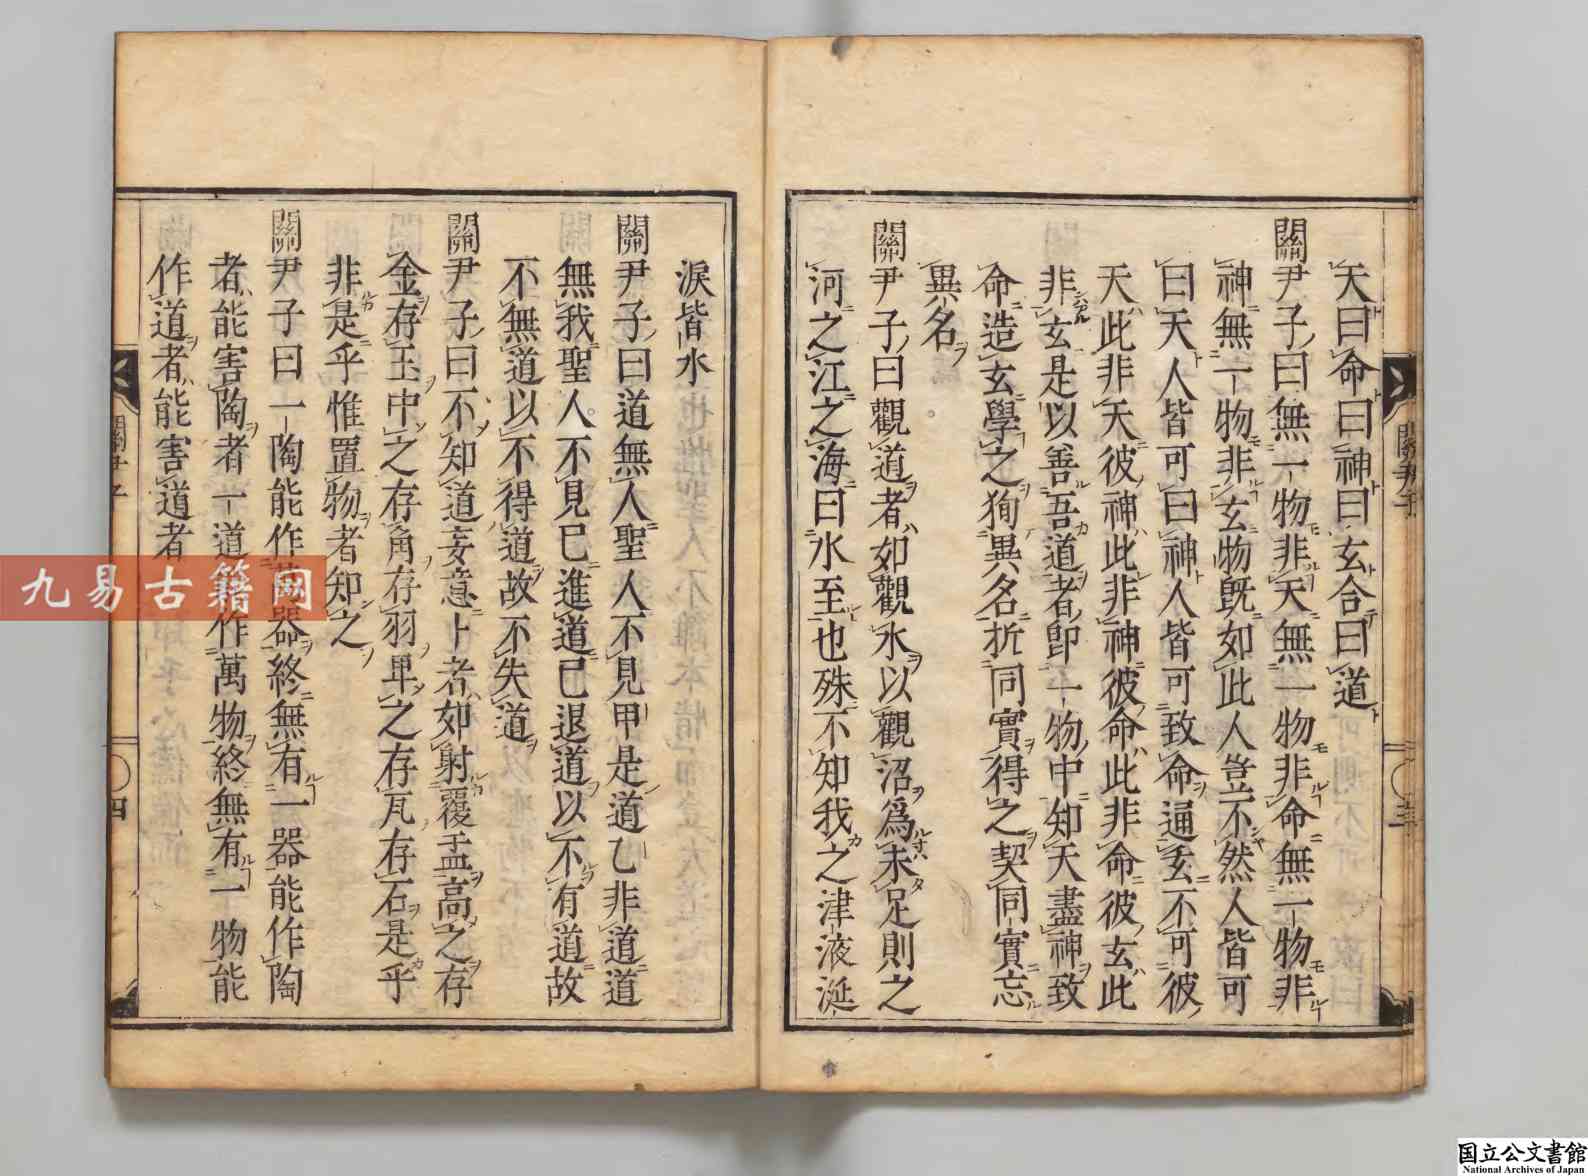 天曰命曰神曰玄合曰道
關尹子曰無一物非天無一物非命無一物非
神無一物非玄物旣如此人豈不然人皆可
曰天人皆可曰神人皆可致命通玄不可彼
天此非天彼神此非神彼命此非命彼玄此
非玄是以善吾道者卽一物中知天盡神致
命造玄學之徇異名析同實得之契同實忘
異名
關尹子曰觀道者如觀水以觀沼爲未足則之
河之江之海曰水至也殊不知我之津液涎
關尹子
三
淚皆水
關尹子曰道無人聖人不見甲是道乙非道道
無我聖人不見己進道己退道以不有道故
不無道以不得道故不失道
關尹子曰不知道妄意卜者如射覆盂高之存
金存玉中之存角存羽卑之存瓦存石是乎
非是乎惟置物者知之
關尹子曰一陶能作萬器終無有一器能作陶
者能害陶者一道能作萬物終無有一物能
作道者能害道者
關尹子
四
九易古籍网
国立公文書館
National Archives of Japan